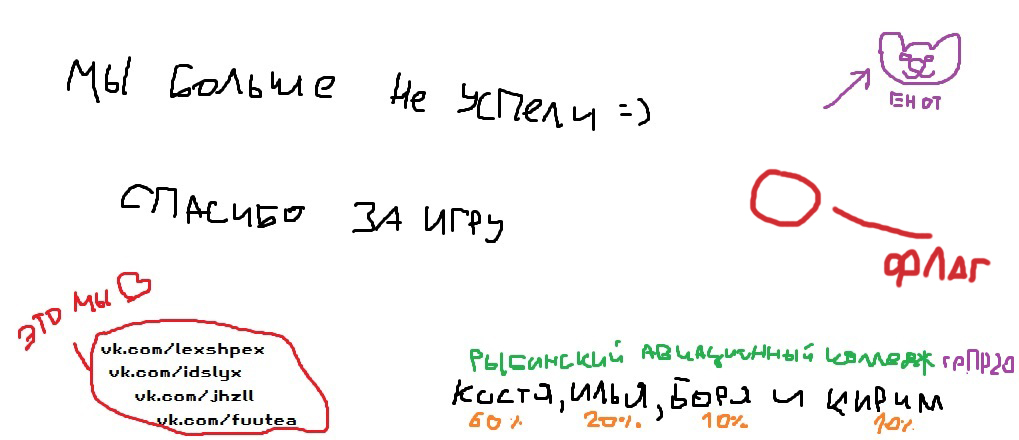 МЫ БОЛЬШЕ НЕ УСПЕЛИ =)
ЕНОТ
СПАСИБО ЗА ИГРУ
ФЛАГ
ЭТО МЫ
vk.com/lexshpex
vk.com/idslyx
vk.com/jhzll
vk.com/fuutea
РЫБИНСКИЙ АВИАЦИОННЫЙ КОЛЛЕДЖ грПР20
КОСТЯ, ИЛЬЯ, БОРЯ И КИРИМ
60% 20% 10% 10%